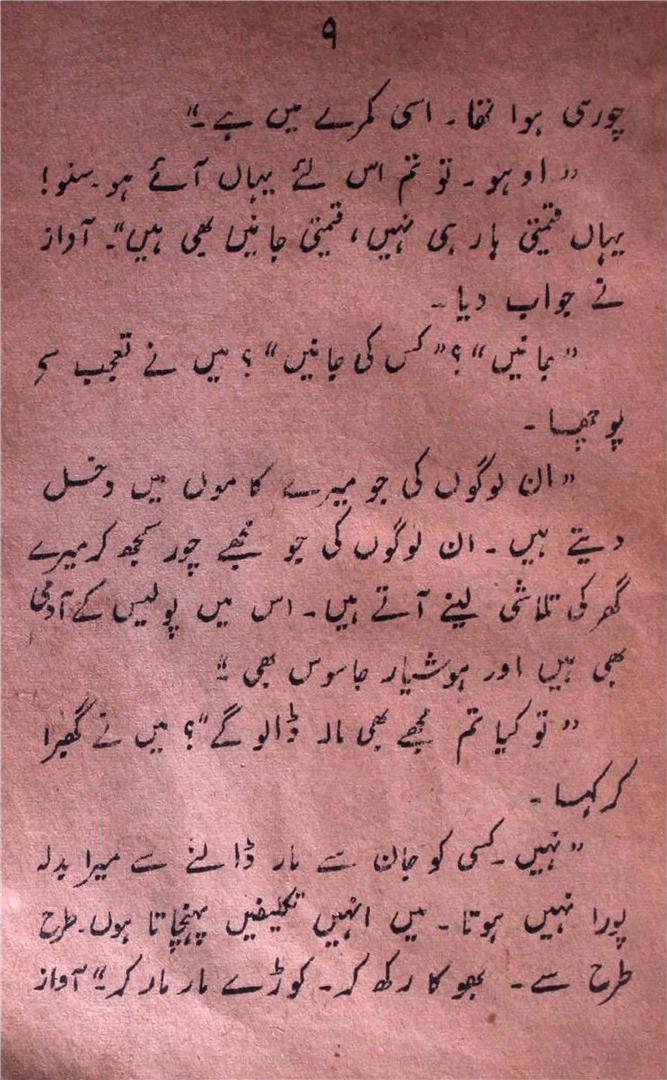 ۹
چوری ہوا تھا۔ اسی کمرے میں ہے۔“
”اوہو۔ تو تم اس لئے یہاں آئے ہو۔ سنو!
یہاں قیمتی ہار ہی نہیں، قیمتی جانیں بھی ہیں“۔ آواز
نے جواب دیا۔
”جانیں“؟ ”کس کی جانیں“؟ میں نے تعجب سے
پوچھا۔
”ان لوگوں کی جو میرے کاموں میں دخل
دیتے ہیں۔ ان لوگوں کی جو مجھے چور سمجھ کر میرے
گھر کی تلاشی لینے آتے ہیں۔ اس میں پولیس کے آدمی
بھی ہیں اور ہوشیار جاسوس بھی“۔
”تو کیا تم مجھے بھی مار ڈالو گے“؟ میں نے گھبرا
کر کہا۔
”نہیں۔ کسی کو جان سے مار ڈالنے سے میرا بدلہ
پورا نہیں ہوتا۔ میں انہیں تکلیفیں پہنچاتا ہوں۔ طرح
طرح سے۔ بھوکا رکھ کر۔ کوڑے مار مار کر“۔ آواز